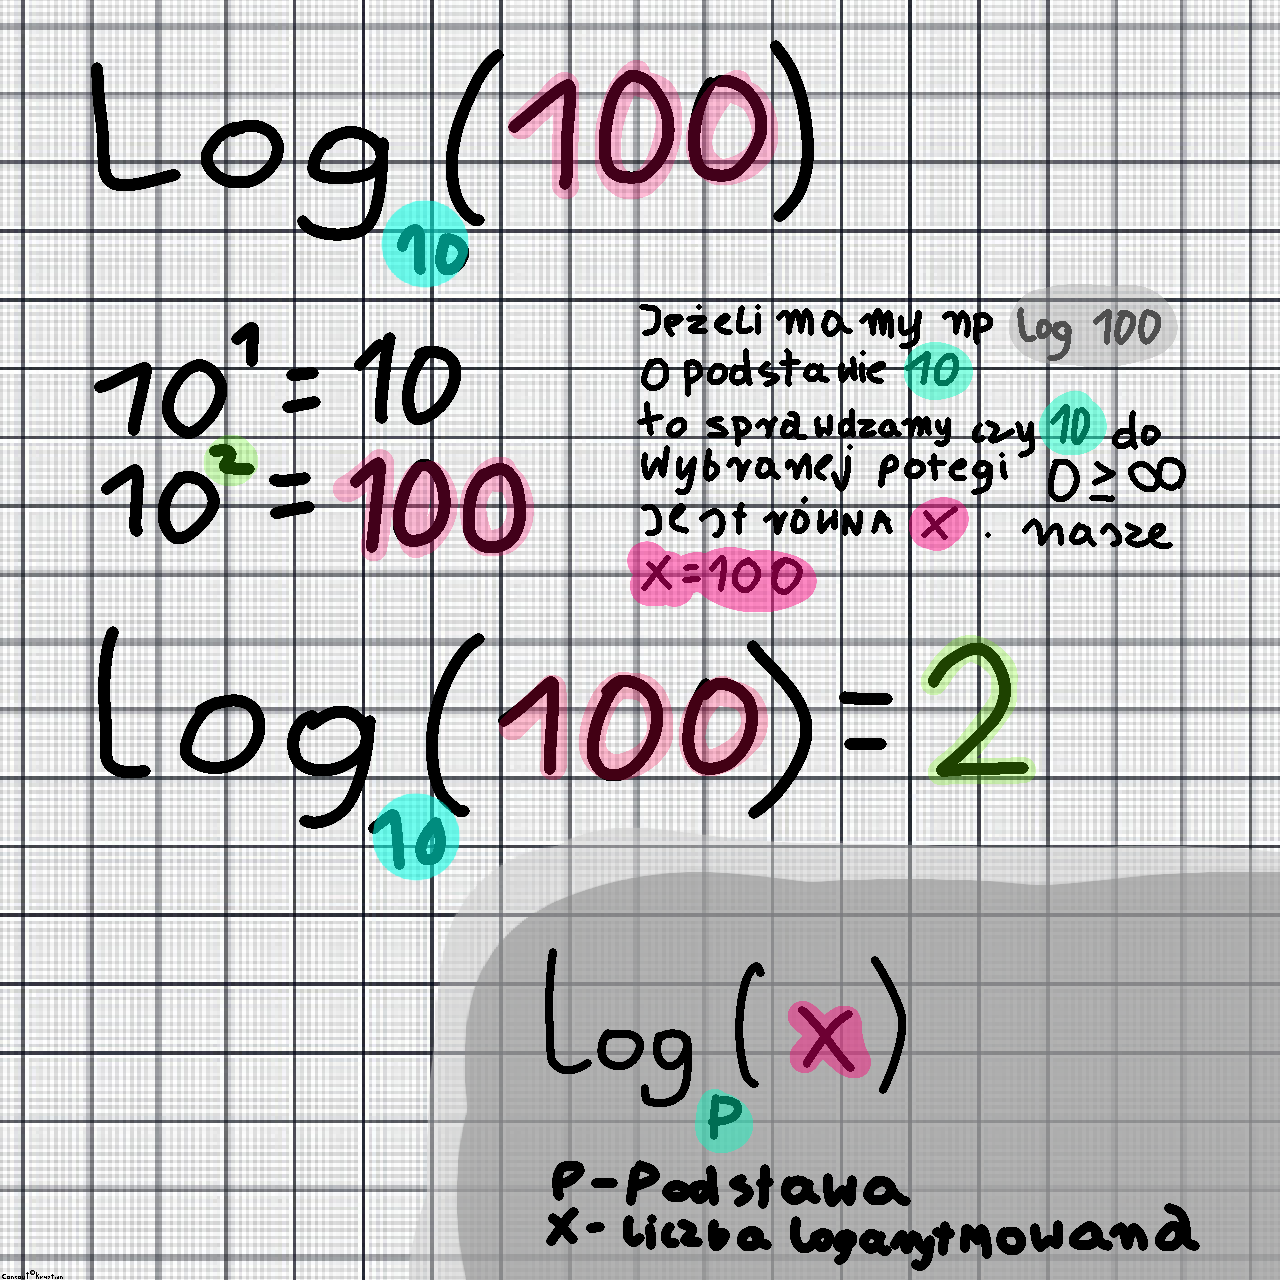 Log₁₀(100)
10¹ = 10
10² = 100
Jeżeli mamy np log 100
o podstawie 10
to sprawdzamy czy 10 do
wybranej potegi 0 ≥ ∞
jest równa x. nasze
x=100
Log₁₀(100) = 2
Logₚ(x)
P-Podstawa
X-liczba logarytmowana